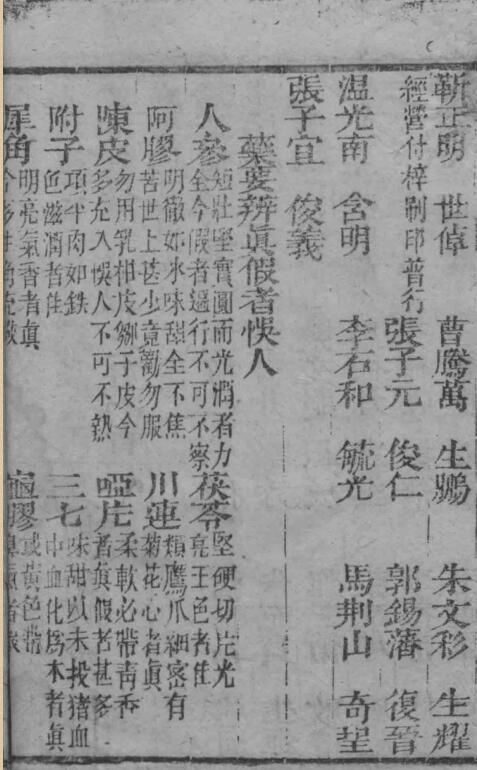 靳正明 世偉 曹騰萬 生鵬 朱文彩 生耀
經營付梓刷印普行 張子元 俊仁 郭錫藩 復晉
温光南 含明 李石和 毓光 馬荆山 奇呈
張子宜 俊義
藥要辨真假者悞人
人參 短壯堅實圓而光潤者力
全今假者過行不可不察
茯苓 堅硬切片光
亮玉色者佳
阿膠 明徹如水味甜全不焦
苦世上甚少竟勸勿服
川連 類鷹爪細密有
菊花心者真
陳皮 勿用乳柑皮獅子皮今
多充入悞人不可不熟
啞片 柔軟必帶青香
者真假者甚多
附子 項平肉如鉄
色滋潤者佳
三七 味甜以末投猪血
中血化爲木者真
犀角 明亮氣香者真
龜膠 或黄色帶